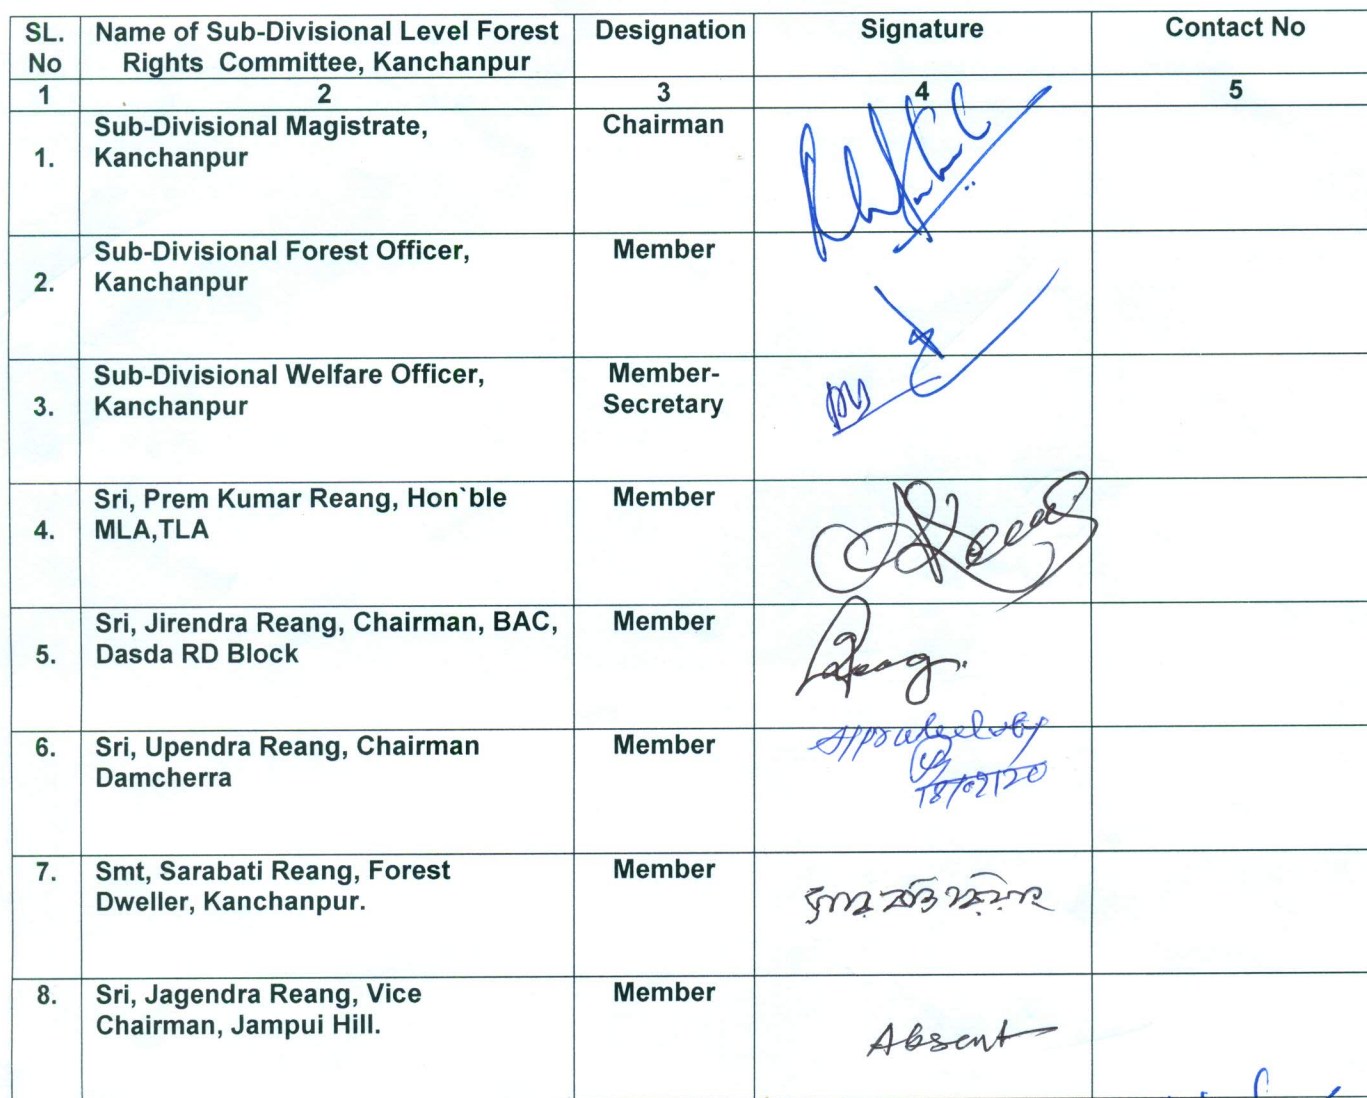 SL. No Name of Sub-Divisional Level Forest Rights Committee, Kanchanpur Designation Signature Contact No
1 2 3 4 5
1. Sub-Divisional Magistrate, Kanchanpur Chairman
2. Sub-Divisional Forest Officer, Kanchanpur Member
3. Sub-Divisional Welfare Officer, Kanchanpur Member-Secretary
4. Sri, Prem Kumar Reang, Hon`ble MLA,TLA Member
5. Sri, Jirendra Reang, Chairman, BAC, Dasda RD Block Member Reang.
6. Sri, Upendra Reang, Chairman Damcherra Member
7. Smt, Sarabati Reang, Forest Dweller, Kanchanpur. Member
8. Sri, Jagendra Reang, Vice Chairman, Jampui Hill. Member Absent